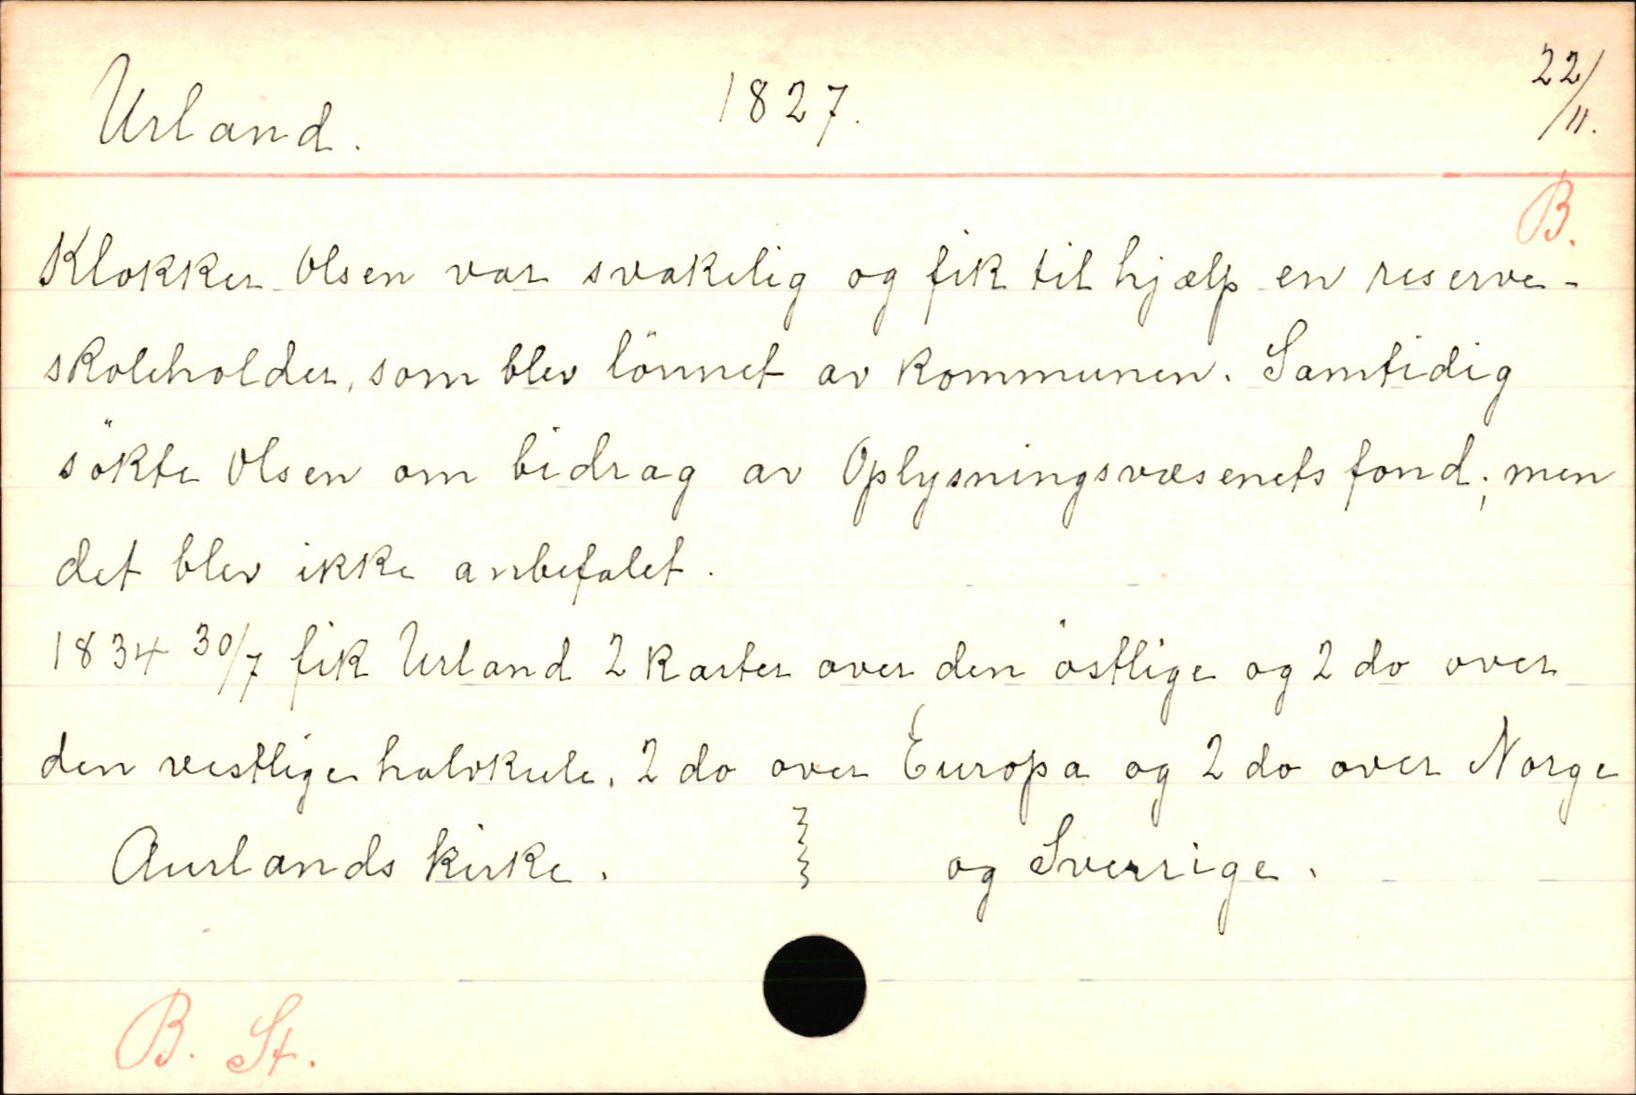 Urland. 1827. 22/11.
B.
Klokker Olsen var svakelig og fik til hjælp en reserve-
skoleholder, som blev lönnet av kommunen. Samtidig
sökte Olsen om bidrag av Oplysningsvæsenets fond; men
det blev ikke anbefalet.
1834 30/7 fik Urland 2 karter over den östlige og 2 do over
den vestlige halvkule, 2 do over Europa og 2 do over Norge
Aurlands kirke. og Sverrige.
B. St.